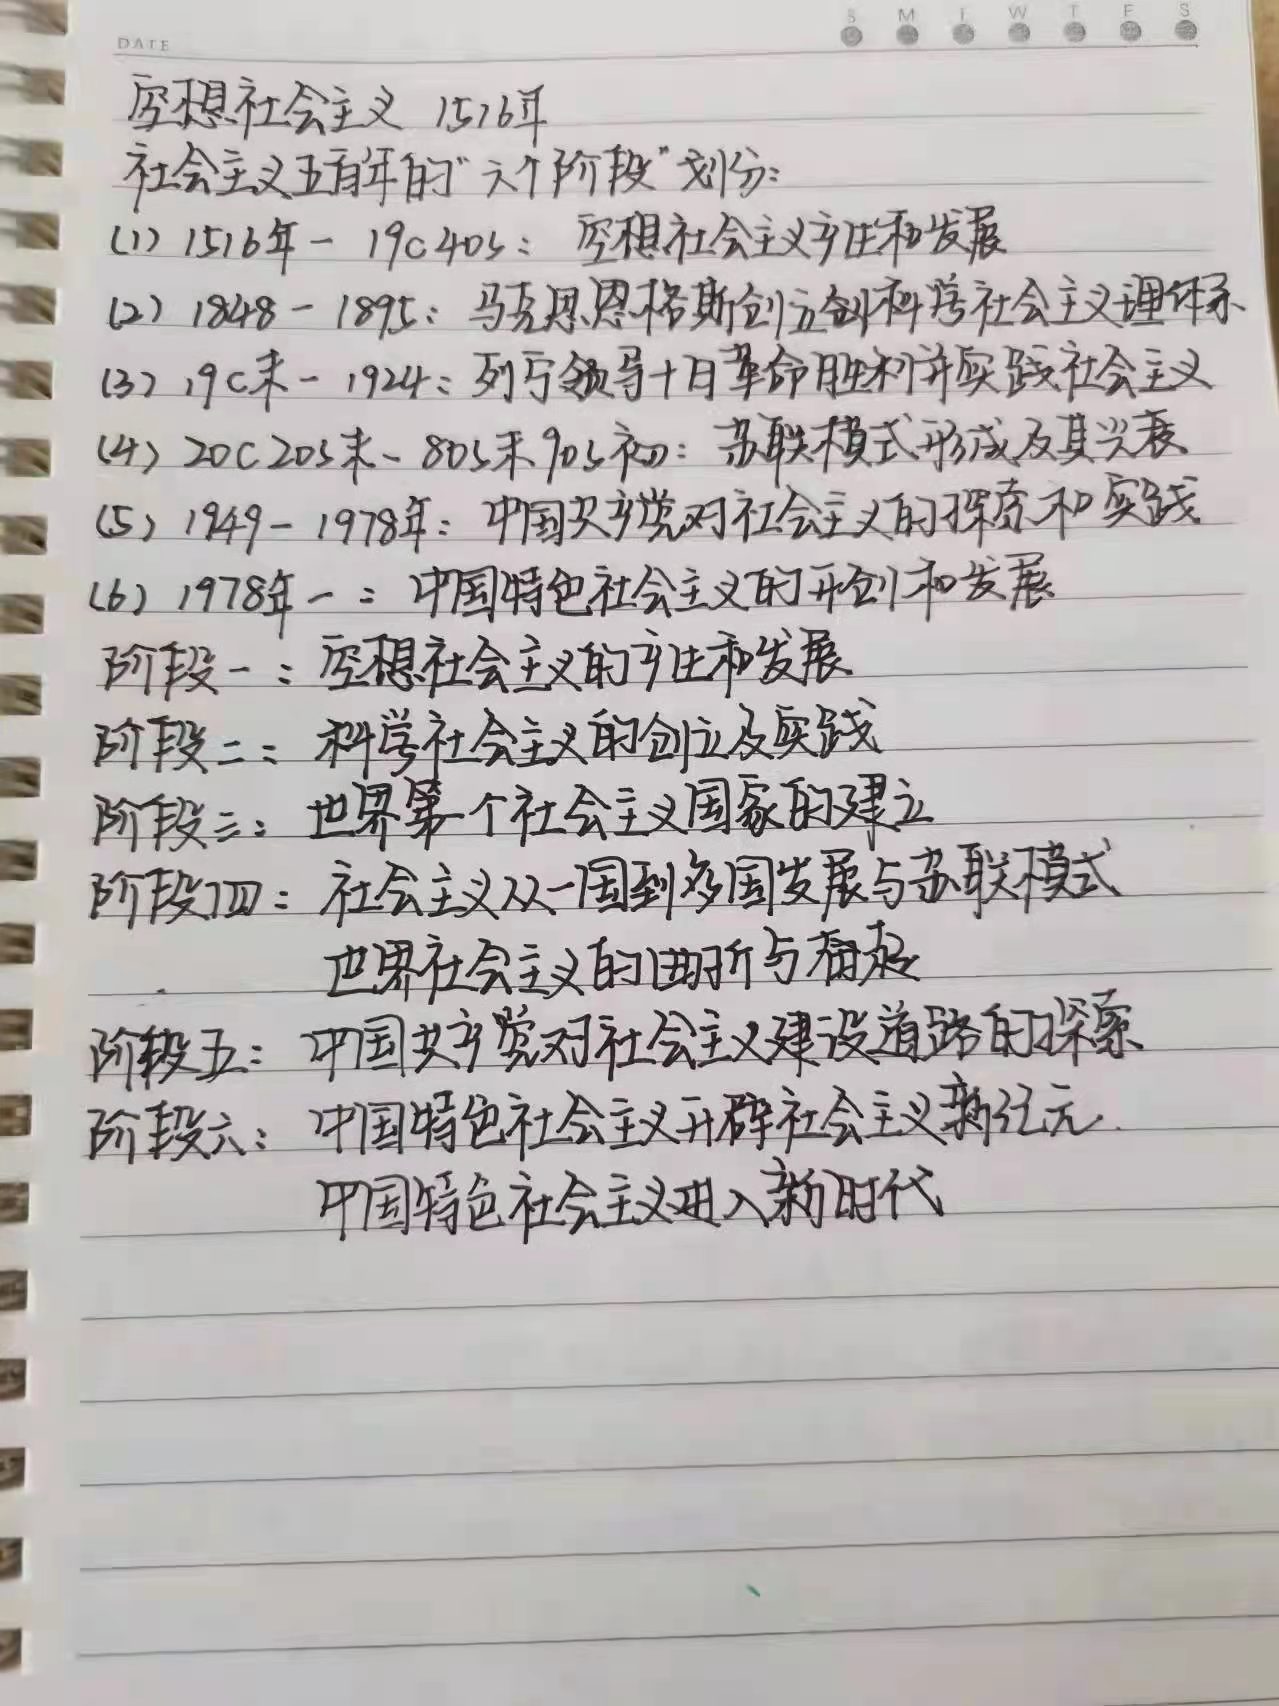 DATE
S M T W T F S
空想社会主义 1516年
社会主义五百年的“六个阶段”划分:
(1) 1516年-19c40s: 空想社会主义产生和发展
(2) 1848-1895: 马克思恩格斯创立创科学社会主义理体系
(3) 19c末-1924: 列宁领导十月革命胜利并实践社会主义
(4) 20c20s末-80s末90s初: 苏联模式形成及其兴衰
(5) 1949-1978年: 中国共产党对社会主义的探索和实践
(6) 1978年-: 中国特色社会主义的开创和发展
阶段一: 空想社会主义的产生和发展
阶段二: 科学社会主义的创立及实践
阶段三: 世界第一个社会主义国家的建立
阶段四: 社会主义从一国到多国发展与苏联模式
世界社会主义的曲折与
阶段五: 中国共产党对社会主义建设道路的探索
阶段六: 中国特色社会主义开辟社会主义新纪元.
中国特色社会主义进入新时代